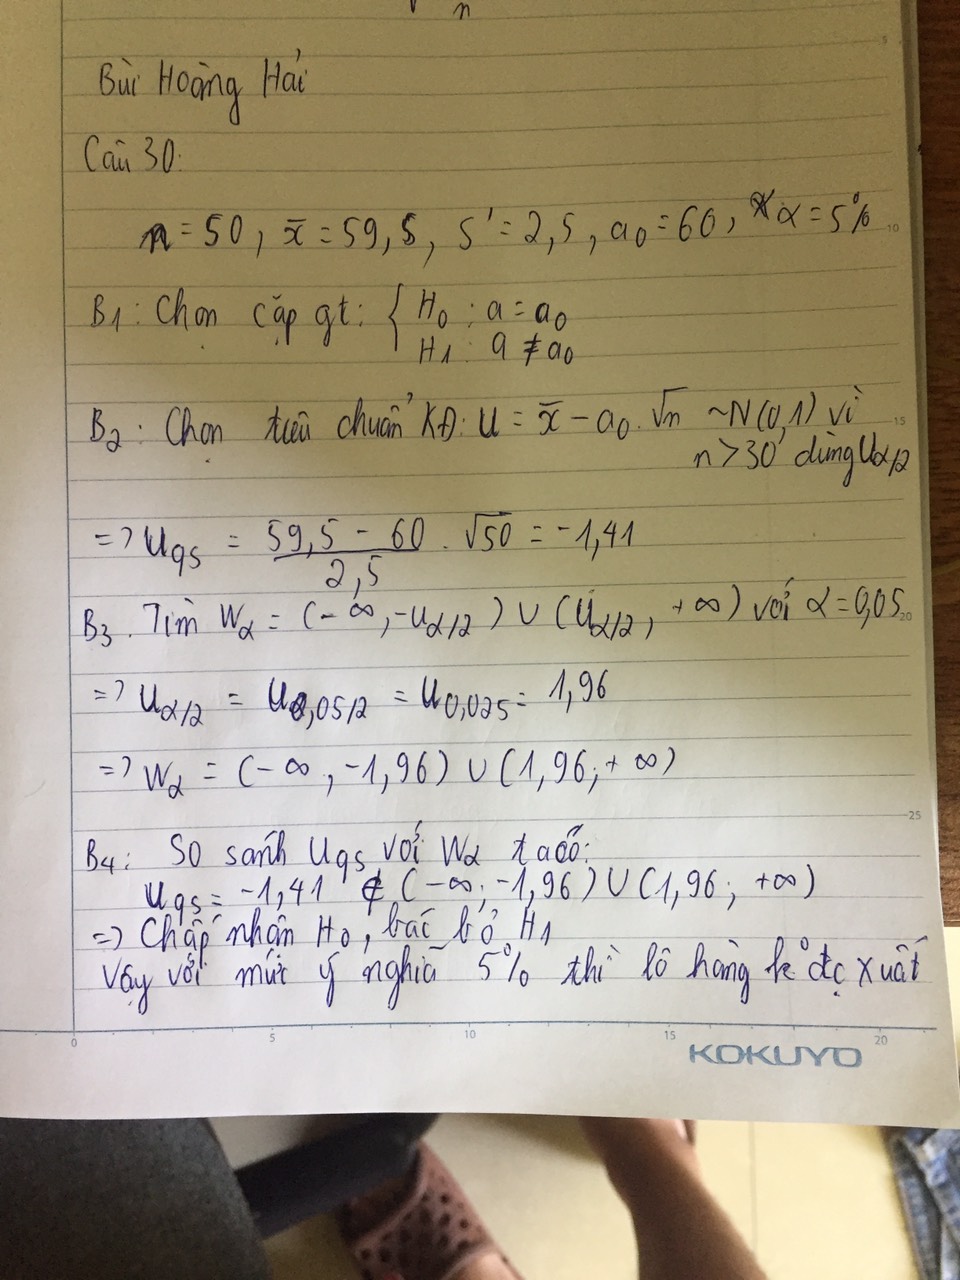 n
Bùi Hoàng Hải
Câu 30:
n = 50, x̄ = 59,5, s' = 2,5, a₀ = 60, α = 5%
10
B₁: Chọn cặp gt: { H₀ : a = a₀
H₁ : a ≠ a₀
B₂: Chọn tiêu chuẩn KĐ: U = x̄ - a₀ . √n ~ N(0,1) vì
15
n > 30 dùng Uα/2
=> Uqs = (59,5 - 60)/2,5 . √50 = -1,41
B₃. Tìm Wα = (-∞, -uα/2) ∪ (uα/2, +∞) với α = 0,05
20
=> Uα/2 = U0,05/2 = U0,025 = 1,96
=> Wα = (-∞, -1,96) ∪ (1,96; +∞)
25
B₄: So sánh Uqs với Wα ta có:
Uqs = -1,41 ∉ (-∞; -1,96) ∪ (1,96; +∞)
=> Chấp nhận H₀, bác bỏ H₁
Vậy với mức ý nghĩa 5% thì lô hàng k° đc xuất
0 5 10 15 20
KOKUYO